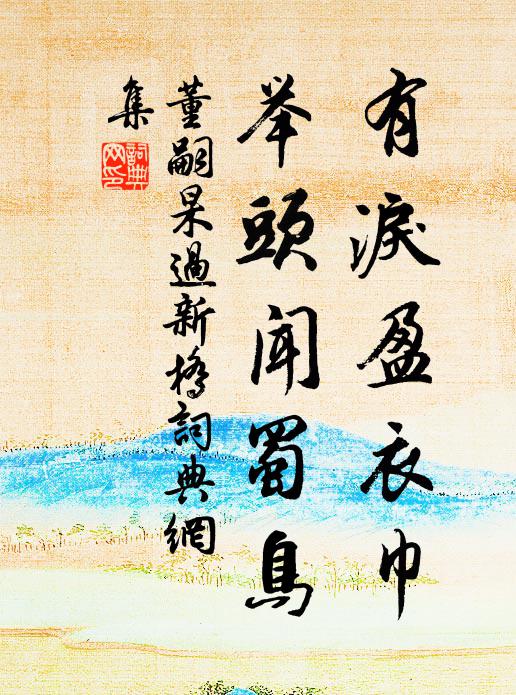 有淚盈衣巾
举頭聞蜀鳥
董嗣杲過新橋詞典網
集
詞典网印